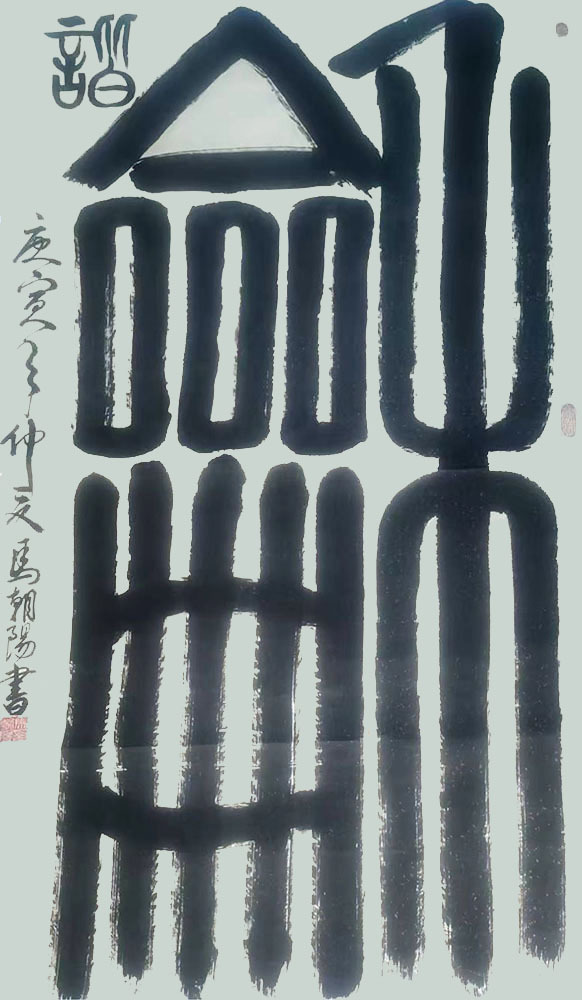 龢
諧
庚寅年仲夏馬朝陽書